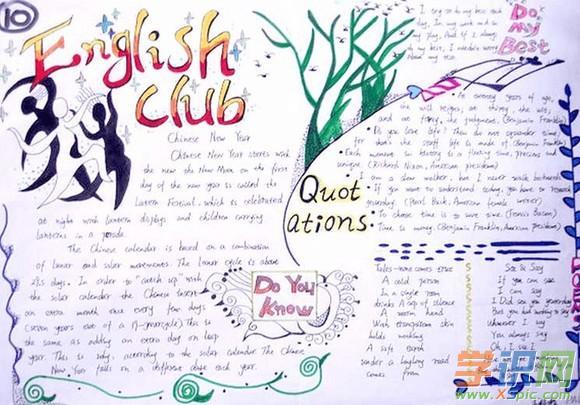 10
English
Club
Chinese New Year
Chinese New Year starts with
the new the New Moon on the first
day of the new year is called the
Latern Festival, which is celebrated
at night with lantern displays and children carrying
lanterns in a parade.
The Chinese calendar is based on a combination
of lunar and solar movements. The lunar cycle is about
29.5 days. In order to "catch up" with
the solar calendar the Chinese insert
an extra month once every few days
(seven years out of a
This is
the same as adding an extra day on leap
year. This is why, according to the solar calendar The Chinese
New Year falls on a different date each year.
Do My
Best
I to my best
day, In my work and in
my play, And if I always
my best, I needn't worry
about my
Quot
ations:
twenty years of age,
the will reigns, at thirty, the wit,
and at forty, the judgment. (Benjamin Franklin)
Do you love life? Then do not squander time,
for that's the stuff life is made of (Benjamin Franklin)
Each moment in history is a fleeting time, precious and
unique. (Richard Nixon, American president)
I am a slow walker, but I never walk backwards
If you want to understand today, you have to research
yesterday. (Pearl Buck, American female writer)
To choose time is to save time. (Francis Bacon)
Time is money. (Benjamin Franklin, American president)
Do You
Know
Tales come true
A cold person
In a single room
drinks A cup of silence
A warm hand
With strangeism skin
holds nothing
A safe earth
under a laughing road
comes from
See & Say
If you can see
I can say
I did see you yesterday
But you had nothing to say
Whenever I say
You always say
Oh, I see
学识网
www.XSpic.com